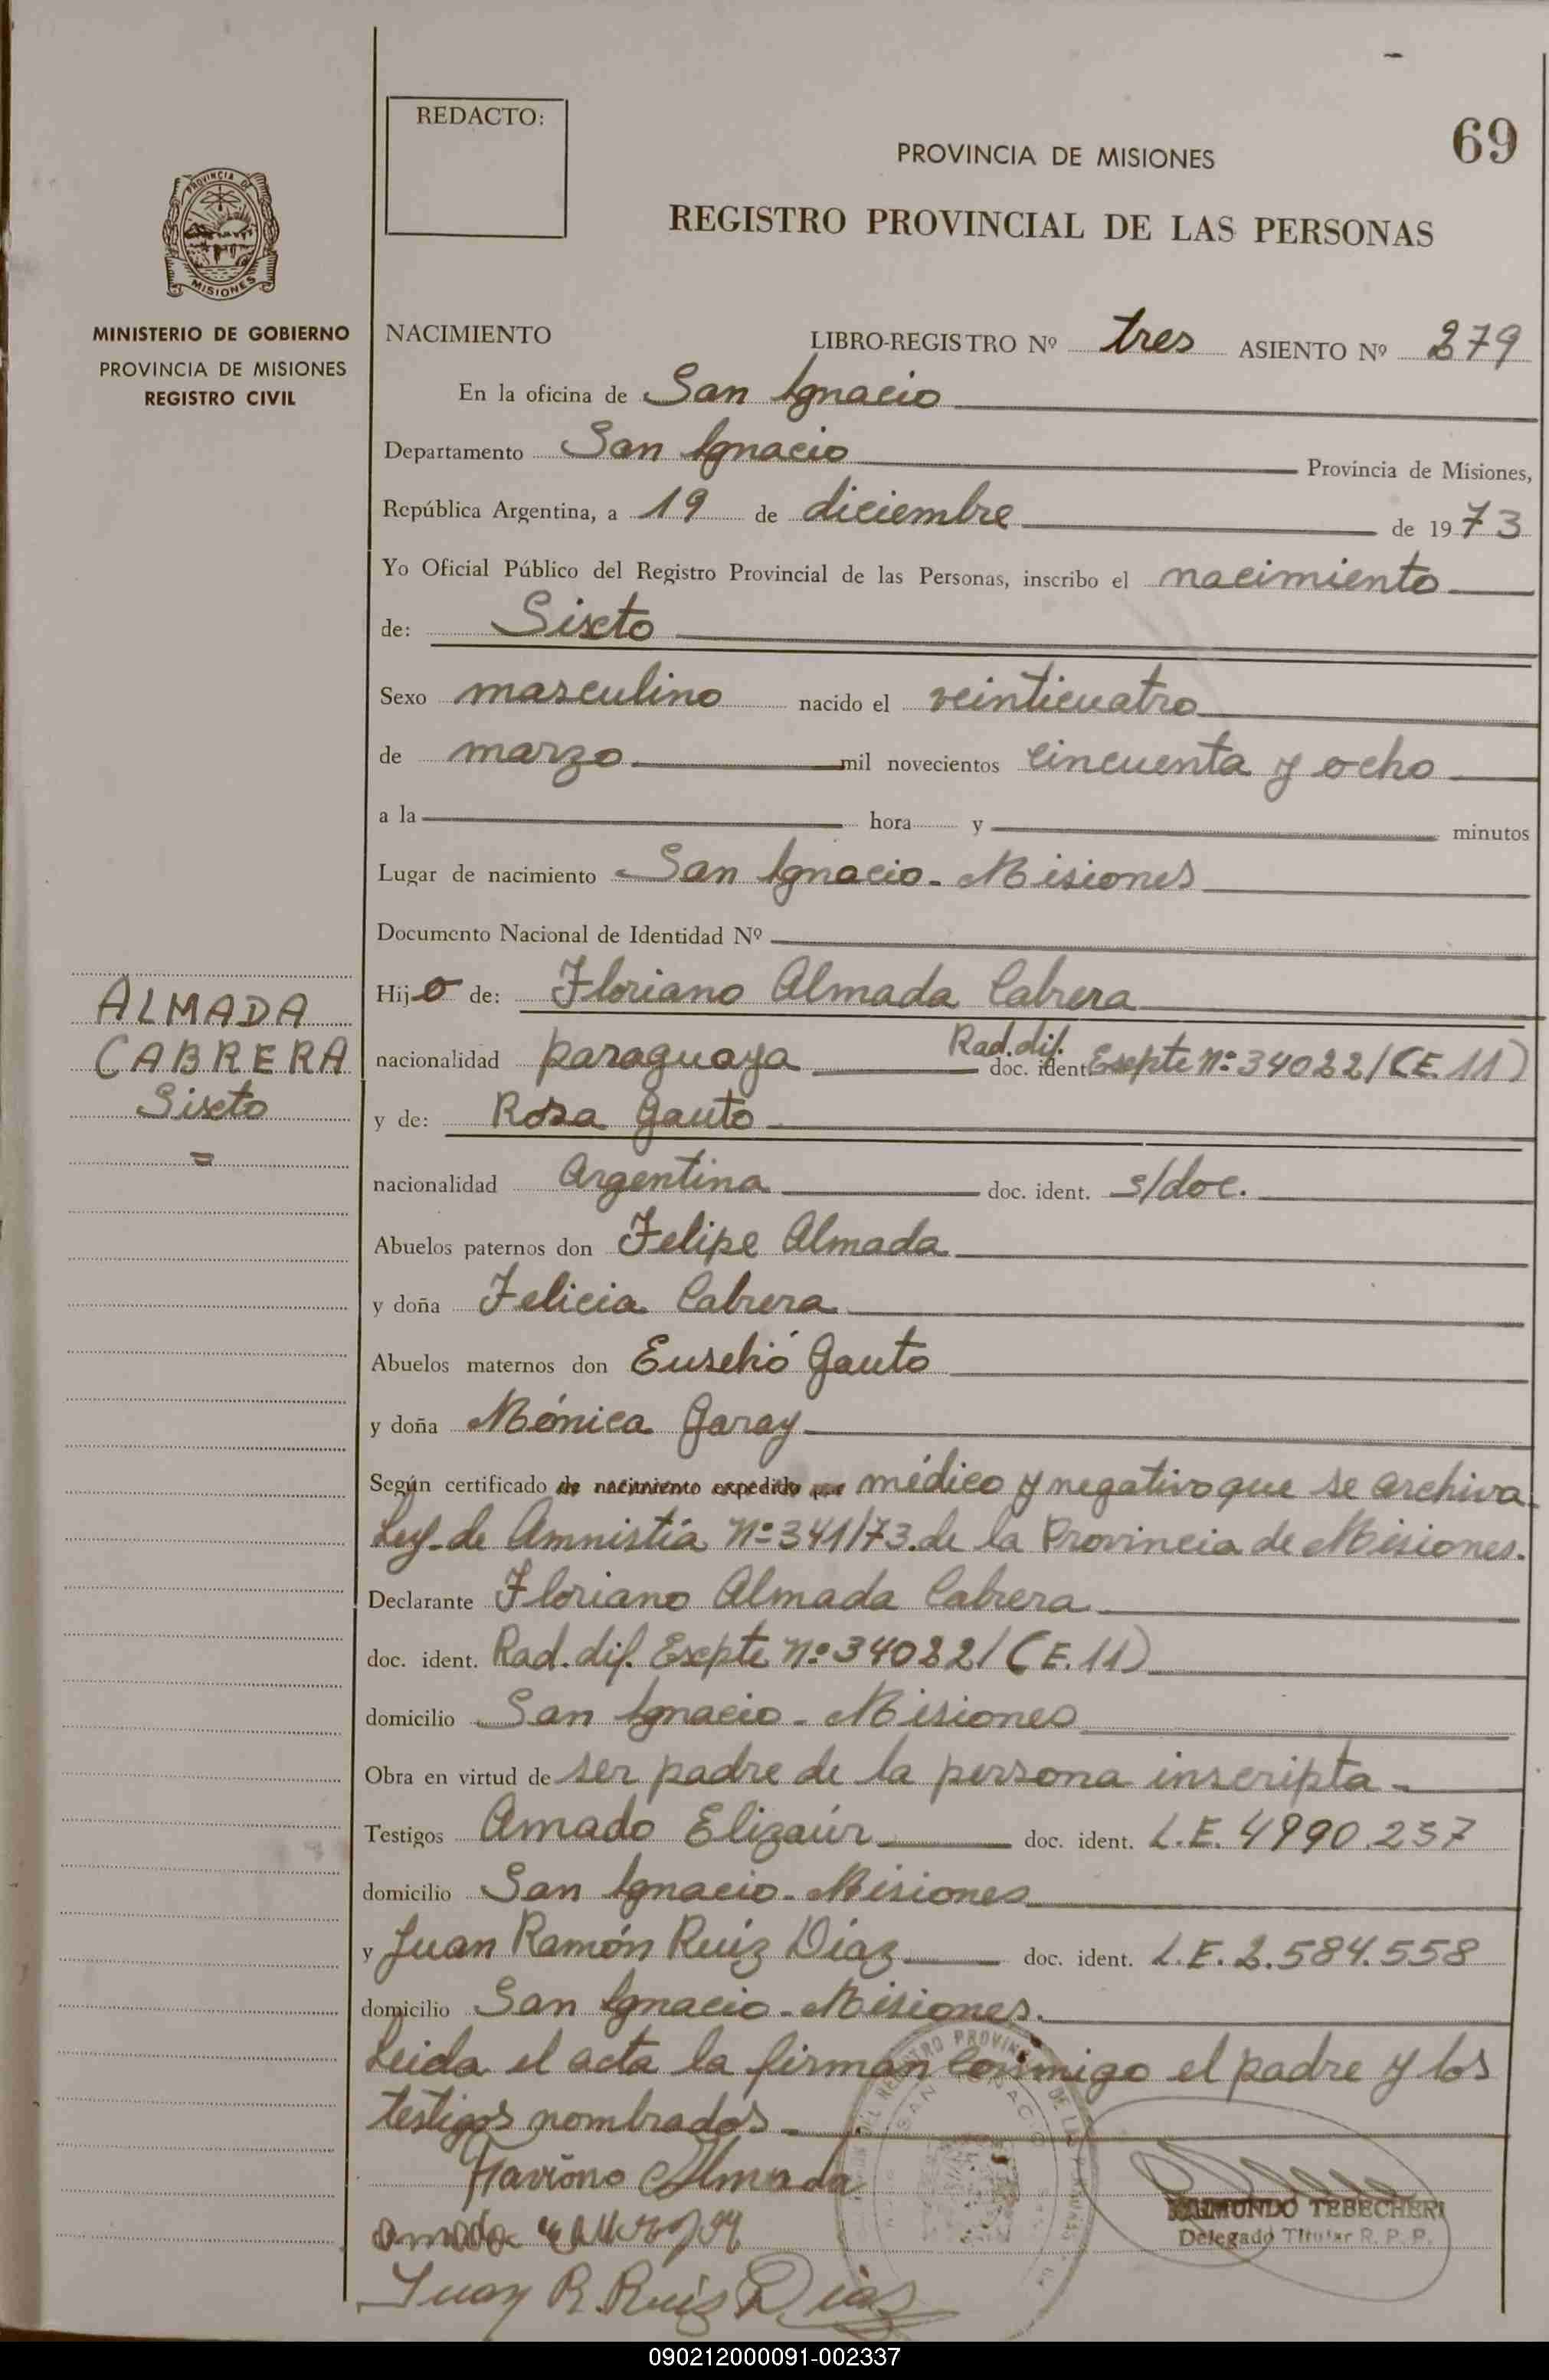 REDACTO:
69
PROVINCIA DE MISIONES
REGISTRO PROVINCIAL DE LAS PERSONAS
PROVINCIA DE
MISIONES
MINISTERIO DE GOBIERNO
PROVINCIA DE MISIONES
REGISTRO CIVIL
NACIMIENTO LIBRO-REGISTRO Nº tres ASIENTO Nº 279
En la oficina de San Ignacio
Departamento San Ignacio Provincia de Misiones,
República Argentina, a 19 de diciembre de 1973
Yo Oficial Público del Registro Provincial de las Personas, inscribo el nacimiento
de: Sixto
Sexo masculino nacido el veinticuatro
de marzo mil novecientos cincuenta y ocho
a la hora y minutos
Lugar de nacimiento San Ignacio - Misiones
Documento Nacional de Identidad Nº
Hijo de: Floriano Almada Cabrera
nacionalidad paraguaya doc. ident. Rad. dif. Exepte Nº 34022/(E.11)
y de: Rosa Gauto
nacionalidad Argentina doc. ident. s/doc.
Abuelos paternos don Felipe Almada
y doña Felicia Cabrera
Abuelos maternos don Eusebió Gauto
y doña Mónica Garay
Según certificado de nacimiento expedido por médico y negativo que se archiva.
Ley de Amnistía Nº 341/73. de la Provincia de Misiones.
Declarante Floriano Almada Cabrera
doc. ident. Rad. dif. Exepte Nº 34022/(E.11)
domicilio San Ignacio - Misiones
Obra en virtud de ser padre de la persona inscripta -
Testigos Amado Elizaúr doc. ident. L.E. 4990.237
domicilio San Ignacio - Misiones
y Juan Ramón Ruiz Díaz doc. ident. L.E. 2.584.558
domicilio San Ignacio - Misiones.
Leida el acta la firman conmigo el padre y los
testigos nombrados -
Almada
RAIMUNDO TEBECHERI
Delegado Titular R. P. P.
amado
Juan R. Ruiz Dias
ALMADA
CABRERA
Sixto
=
090212000091-002337